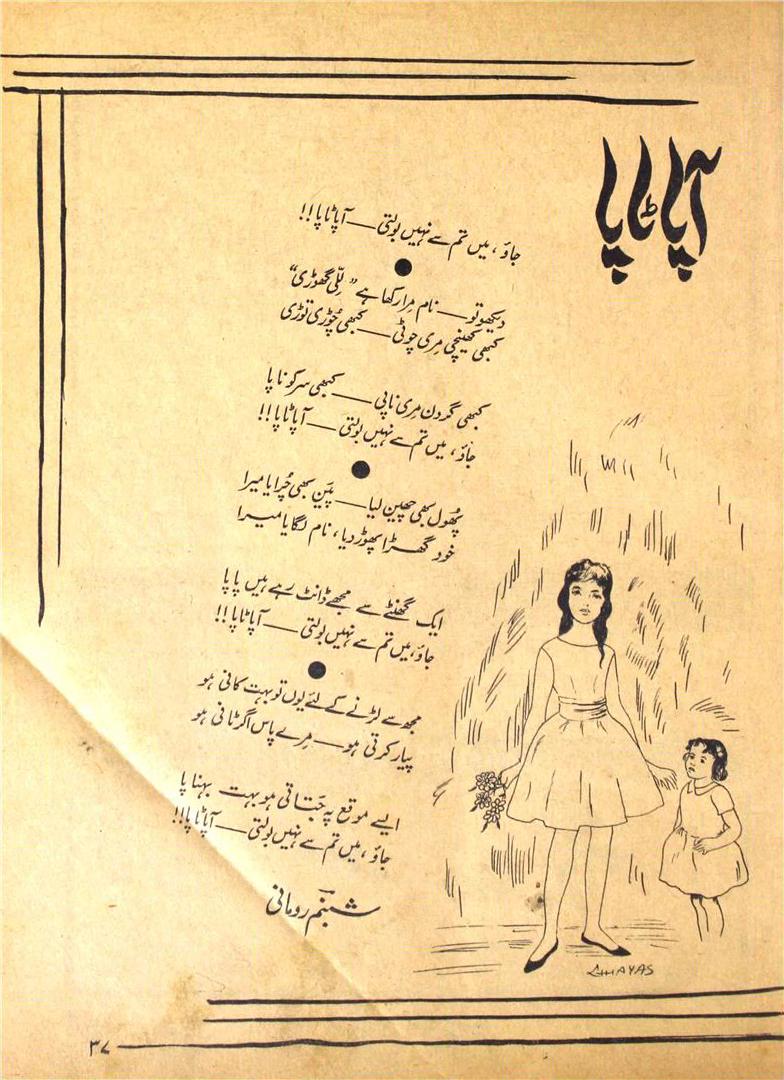 آپا ٹاپا
جاؤ، میں تم سے نہیں بولتی — آپا ٹاپا!!
دیکھو تو — نام مِرا رکھا ہے "لِلّی گھوڑی"
کبھی کھینچی مِری چوٹی — کبھی چُوڑی توڑی
کبھی گردن مِری ناپی — کبھی سر کو ناپا
جاؤ، میں تم سے نہیں بولتی — آپا ٹاپا!!
پھُول بھی چھین لیا — پَین بھی چُرایا میرا
خود گھڑا پھوڑ دیا، نام لگایا میرا
ایک گھنٹے سے مجھے ڈانٹ رہے ہیں پاپا
جاؤ، میں تم سے نہیں بولتی — آپا ٹاپا!!
مجھ سے لڑنے کے لئے یوں تو بہت کافی ہو
پیار کرتی ہو — مِرے پاس اگر ٹافی ہو
ایسے موقع پہ جَتاتی ہو بہت بہناپا
جاؤ، میں تم سے نہیں بولتی — آپا ٹاپا!!
شبنم رومانی
GHAYAS
۳۷